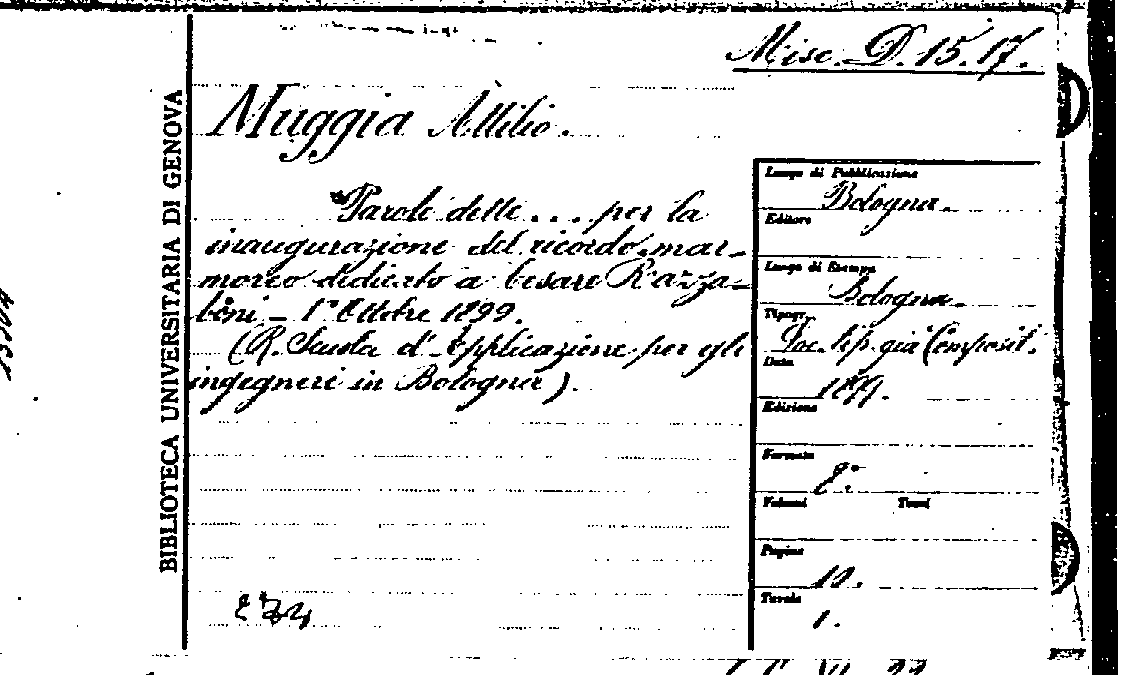 Misc. D. 15. 17.
BIBLIOTECA UNIVERSITARIA DI GENOVA
Muggia Attilio.
Parole dette .... per la
inaugurazione del ricordo mar-
moreo dedicato a Cesare Razza-
boni - 1º Ottobre 1899.
(R. Scuola d'Applicazione per gli
ingegneri in Bologna).
Luogo di Pubblicazione
Bologna.
Editore
Luogo di Stampa
Bologna.
Tipogr.
Soc. tip. già Composit.
Data
1899.
Edizione
Formato
8º.
Volumi Tomi
Pagine
10.
Tavole
1.